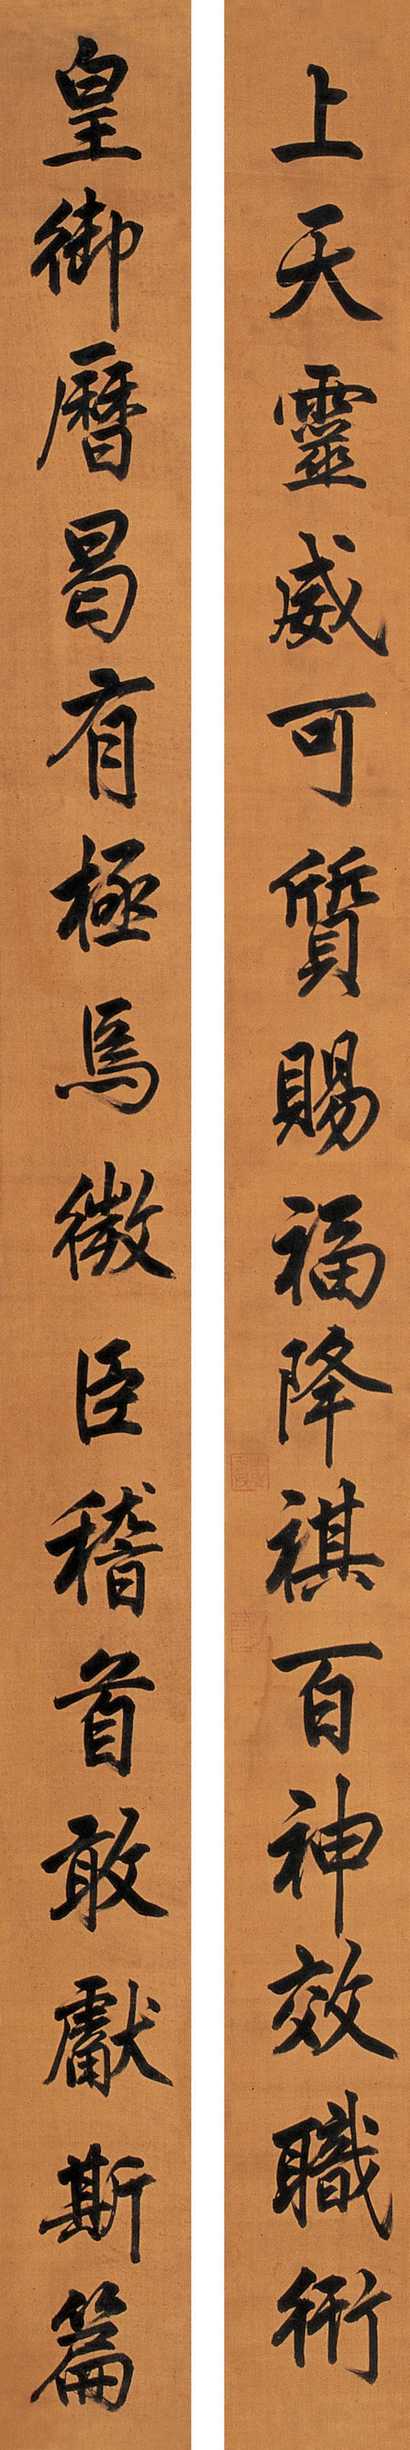 上天靈威可質賜福降祺百神效職衎
皇御曆曷有極焉微臣稽首敢獻斯篇